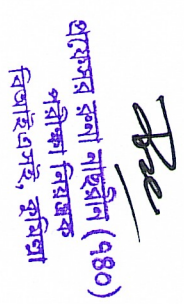 প্রফেসর রুনা নাছরীন (৭৪০)
পরীক্ষা নিয়ন্ত্রক
বিআইএসই, কুমিল্লা